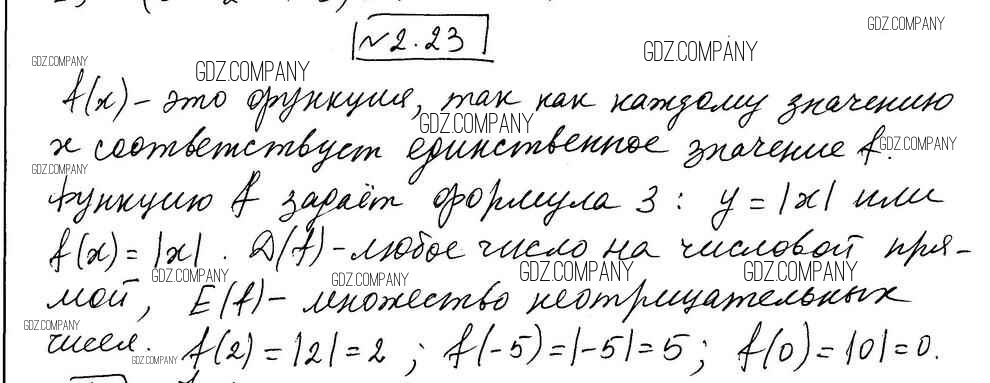 № 2.23
f(x) – это функция, так как каждому значению
x соответствует единственное значение f.
Функцию f задаёт формула 3: y = |x| или
f(x) = |x|. D(f) – любое число на числовой пря-
мой, E(f) – множество неотрицательных
чисел. f(2) = |2| = 2; f(-5) = |-5| = 5; f(0) = |0| = 0.
GDZ.COMPANY
GDZ.COMPANY
GDZ.COMPANY
GDZ.COMPANY
GDZ.COMPANY
GDZ.COMPANY
GDZ.COMPANY
GDZ.COMPANY
GDZ.COMPANY
GDZ.COMPANY
GDZ.COMPANY
GDZ.COMPANY
GDZ.COMPANY